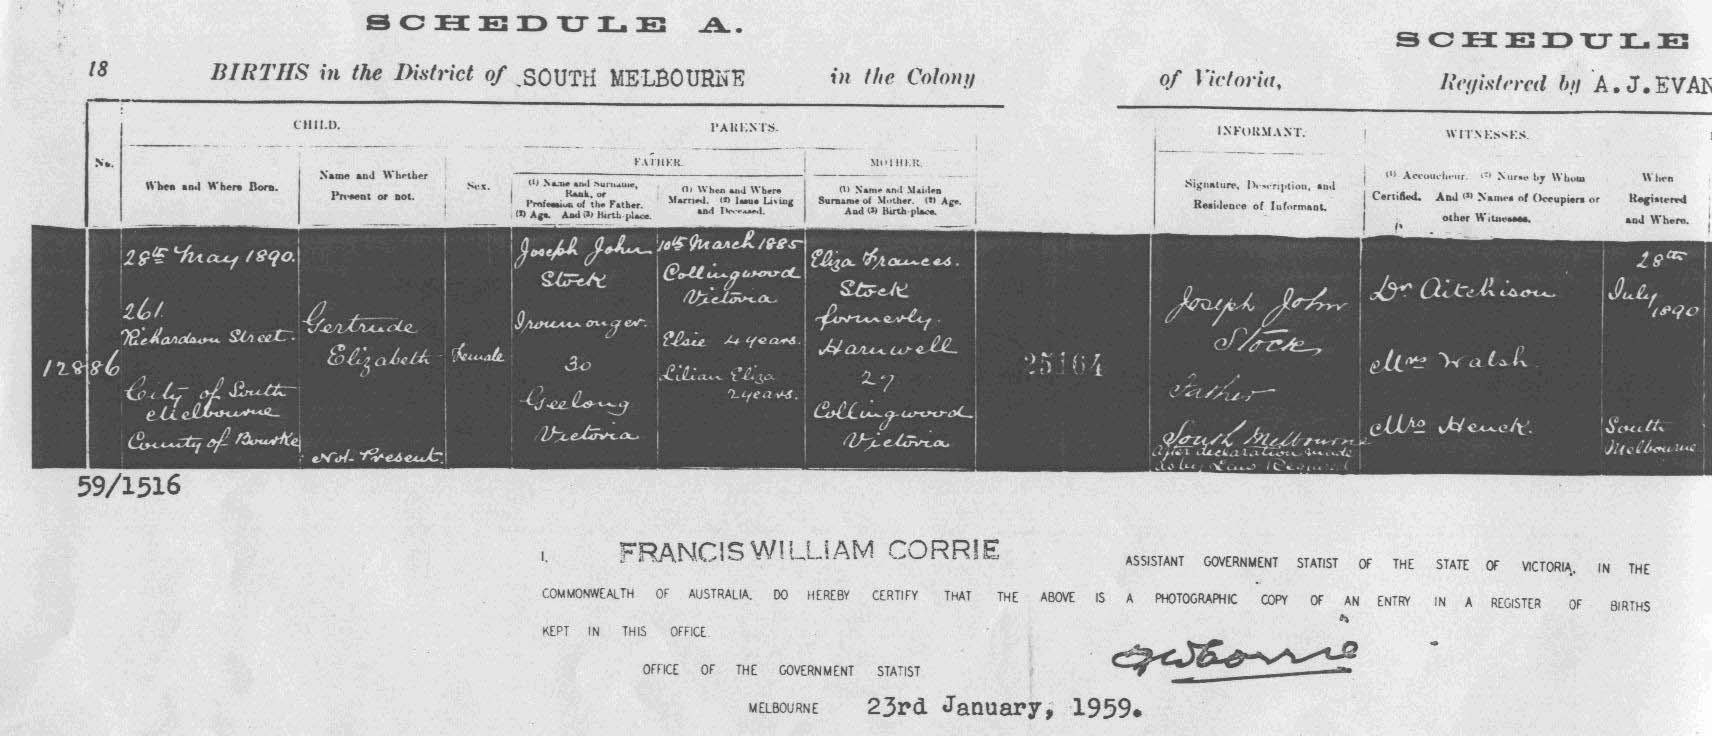 SCHEDULE A.
SCHEDULE
18 BIRTHS in the District of SOUTH MELBOURNE in the Colony of Victoria, Registered by A.J.EVAN
CHILD.
PARENTS.
INFORMANT.
WITNESSES.
No.
When and Where Born.
Name and Whether
Present or not.
Sex.
FATHER.
(1) Name and Surname,
Rank, or
Profession of the Father.
(2) Age. And (3) Birth-place.
(1) When and Where
Married. (2) Issue Living
and Deceased.
MOTHER.
(1) Name and Maiden
Surname of Mother. (2) Age.
And (3) Birth-place.
Signature, Description, and
Residence of Informant.
(1) Accoucheur. (2) Nurse by Whom
Certified. And (3) Names of Occupiers or
other Witnesses.
When
Registered
and Where.
12886
28th May 1890.
261
Richardson Street.
City of South
Melbourne
County of Bourke
Gertrude
Elizabeth
Not Present.
Female
Joseph John
Stock
Ironmonger.
30
Geelong
Victoria
10th March 1885
Collingwood
Victoria
Elsie 4 years.
Lilian Eliza
2 years.
Eliza Frances.
Stock
formerly.
Harnwell
27
Collingwood
Victoria
25164
Joseph John
Stock
Father
South Melbourne
after declaration made
as by Law Required
Dr Aitchison
Mrs Walsh
Mrs Henck.
28th
July
1890
South
Melbourne
59/1516
I, FRANCIS WILLIAM CORRIE ASSISTANT GOVERNMENT STATIST OF THE STATE OF VICTORIA, IN THE
COMMONWEALTH OF AUSTRALIA, DO HEREBY CERTIFY THAT THE ABOVE IS A PHOTOGRAPHIC COPY OF AN ENTRY IN A REGISTER OF BIRTHS
KEPT IN THIS OFFICE.
FWCorrie
OFFICE OF THE GOVERNMENT STATIST
MELBOURNE 23rd January, 1959.